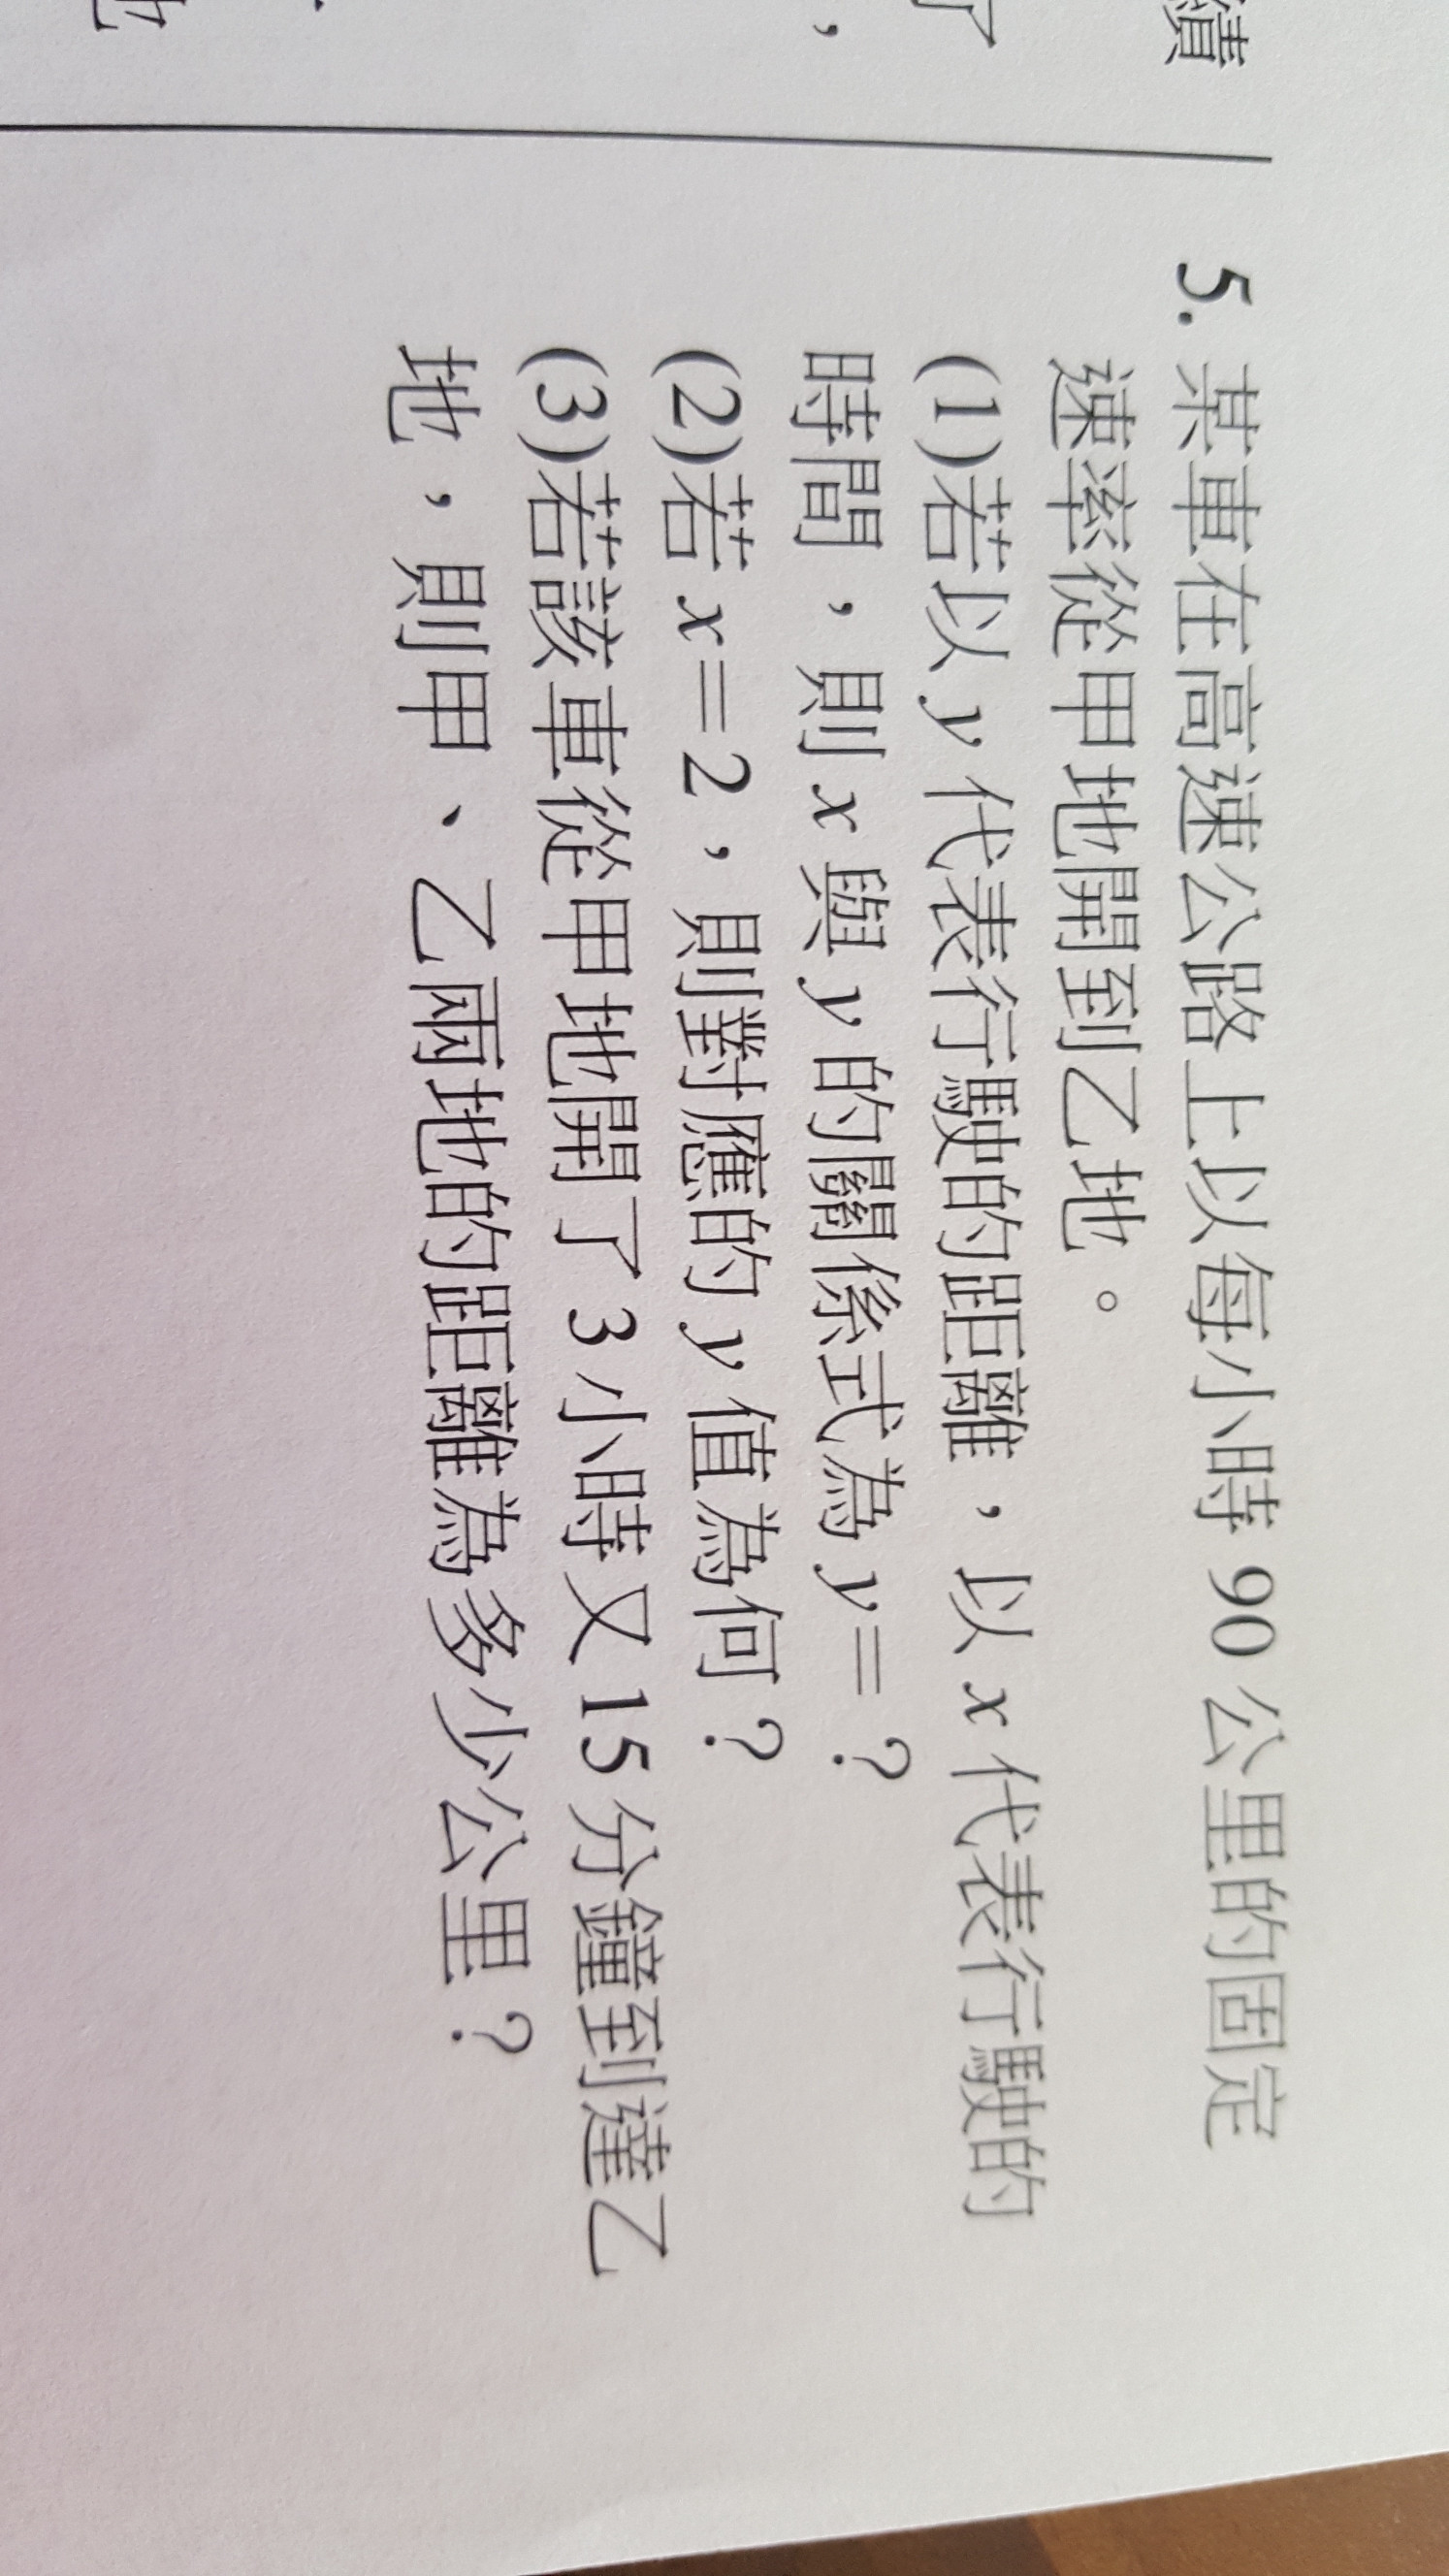 5. 某車在高速公路上以每小時 90 公里的固定
速率從甲地開到乙地。
(1)若以 y 代表行駛的距離，以 x 代表行駛的
時間，則 x 與 y 的關係式為 y=？
(2)若 x=2，則對應的 y 值為何？
(3)若該車從甲地開了 3 小時又 15 分鐘到達乙
地，則甲、乙兩地的距離為多少公里？